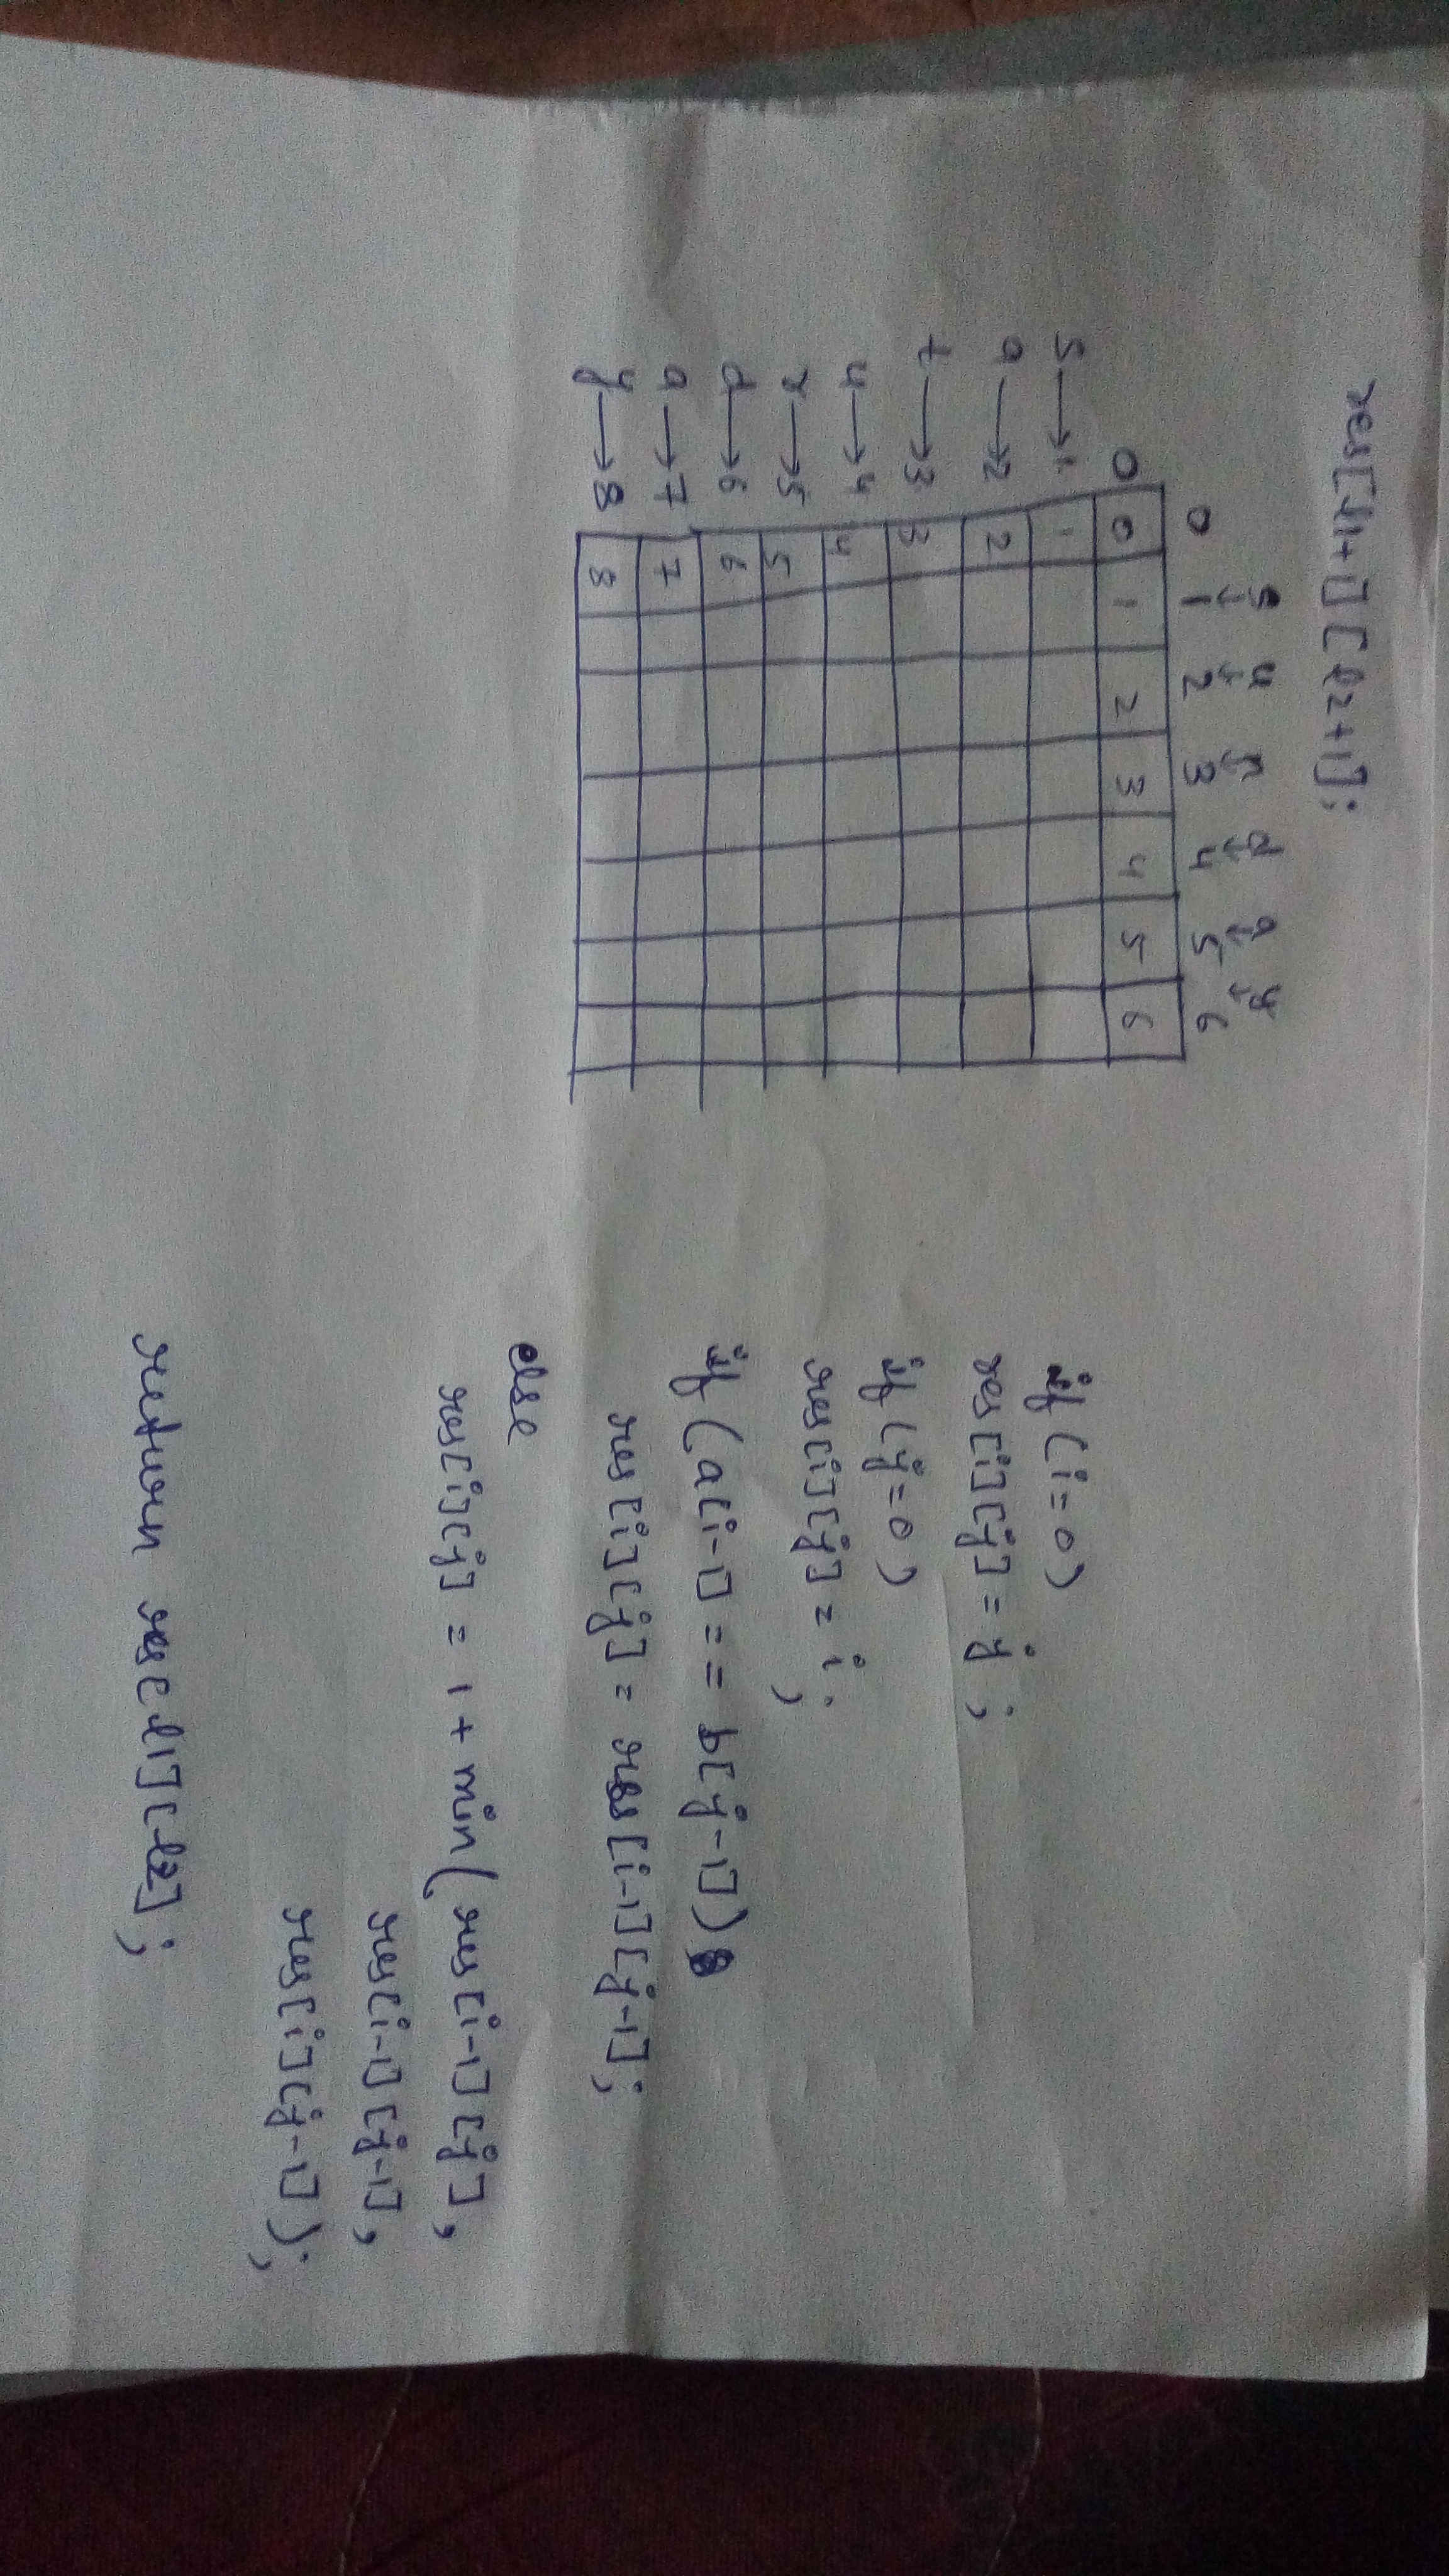 res[l1+1][l2+1];
s u n d a y
0 1 2 3 4 5 6
0 0 1 2 3 4 5 6
s→1 1
a→2 2
t→3 3
u→4 4
r→5 5
d→6 6
a→7 7
y→8 8
if (i=0)
res[i][j] = j ;
if (j=0)
res[i][j] = i ;
if (a[i-1] == b[j-1])
res[i][j] = res[i-1][j-1];
else
res[i][j] = 1 + min( res[i-1][j],
res[i-1][j-1],
res[i][j-1] );
return res[l1][l2];